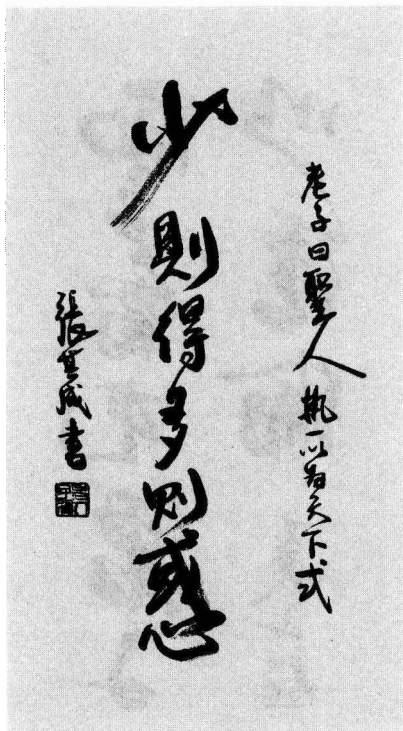 老子曰聖人執一以為天下式
少則得多則惑
張其成書